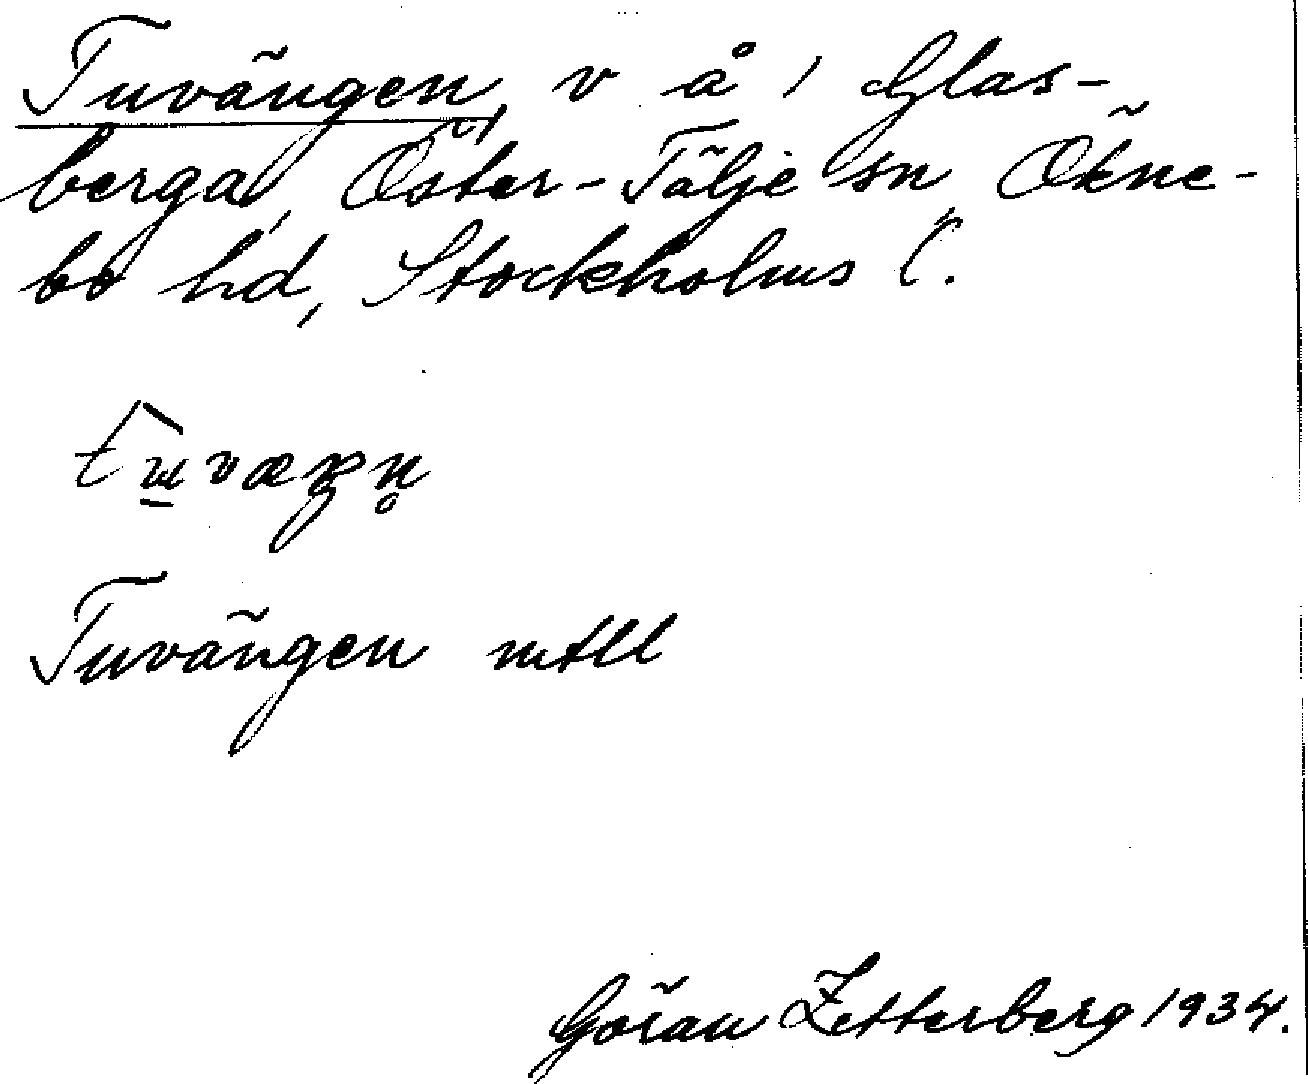 Tuvängen, v å i Glas-
berga, Öster-Tälje sn Ökne-
bo hd, Stockholms l.
Tuvängen mtll
Göran Zetterberg 1934.